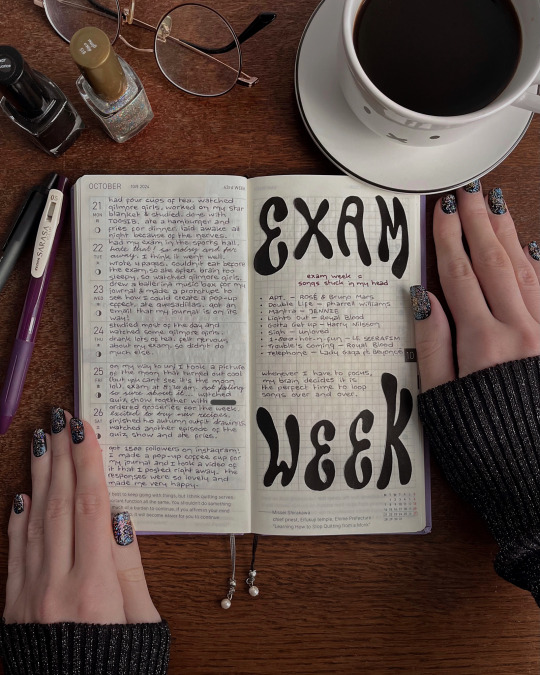 SARASA
OCTOBER
43RD WEEK
21
MON
had four cups of tea. watched
gilmore girls. worked on my star
blanket & studied. done with
ate a hamburger and
fries for dinner. laid awake at
night because of the nerves.
22
had my exam in the sports hall.
I think it went well.
wrote 4 pages. couldn't eat before
the exam, so ate after. brain too
sleepy, so watched gilmore girls.
23
drew a ballerina music box for my
journal & made a prototype to
see how I could create a pop-up
effect. ate quesadillas. got an
email that my journal is on its
way!
24
studied most of the day and
watched some gilmore girls.
drank lots of tea. felt nervous
about my exam, so didn't do
much else.
25
on my way to uni I took a picture
of the moon that turned out cool
(but you can't see it's the moon
quiz show together with
26
ordered groceries for the week.
excited to try new recipes.
finished the autumn outfit drawing.
watched another episode of the
quiz show and ate fries.
got 1500 followers on instagram!
I made a pop-up coffee cup for
my journal and I took a video of
it that I posted right away. the
responses were so lovely and
made me very happy.
EXAM
exam week =
songs stuck in my head
APT. - ROSÉ & Bruno Mars
Double Life - Pharrell Williams
Mantra - JENNIE
Lights Out - Royal Blood
Gotta Get Up - Harry Nilsson
sigh - unloved
1-800-hot-n-fun - LE SSERAFIM
Trouble's Coming - Royal Blood
Telephone - Lady Gaga ft Beyoncé
10
whenever I have to focus,
my brain decides it is
the perfect time to loop
songs over and over.
WEEK
chief priest, Eifukuji temple, Ehime Prefecture
"Learning How to Stop Quitting from a Monk"